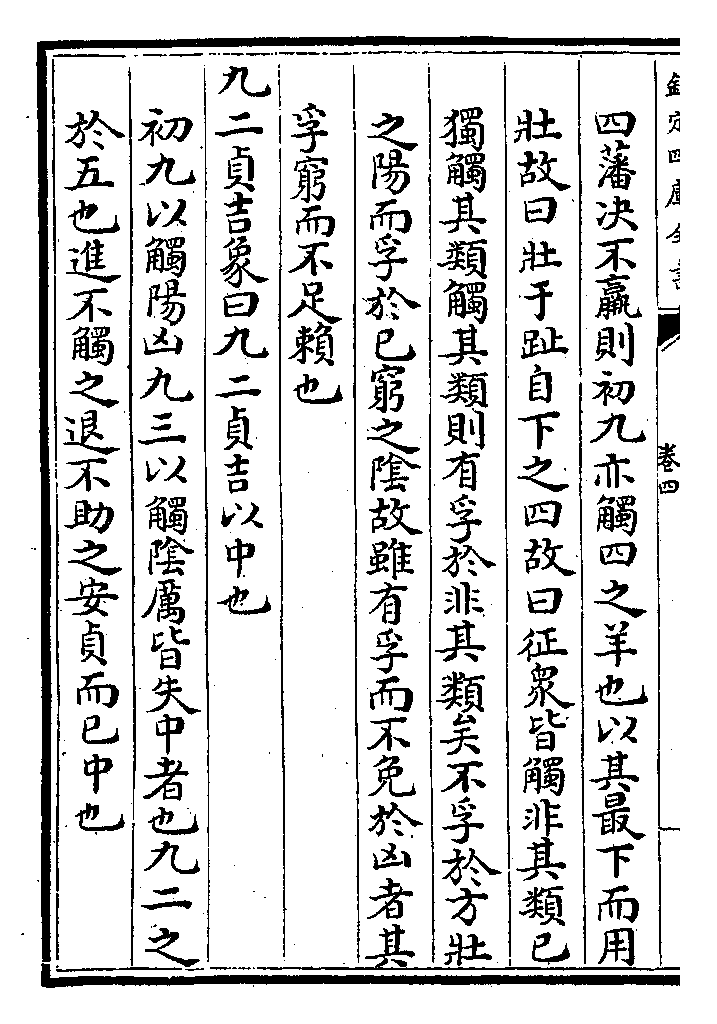 欽定四庫全書
卷四
四藩決不羸則初九亦觸四之羊也以其最下而用
壯故曰壯于趾自下之四故曰征衆皆觸非其類已
獨觸其類觸其類則有孚於非其類矣不孚於方壯
之陽而孚於已窮之陰故雖有孚而不免於凶者其
孚窮而不足賴也
九二貞吉象曰九二貞吉以中也
初九以觸陽凶九三以觸陰厲皆失中者也九二之
於五也進不觸之退不助之安貞而已中也